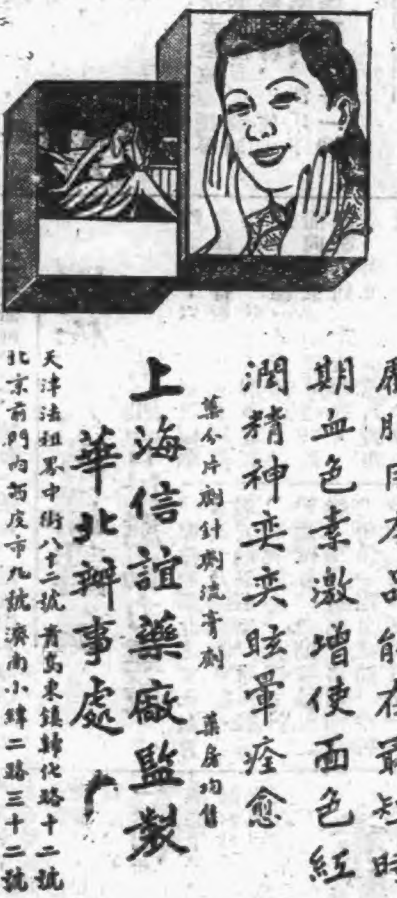 服用本品能在最短時
期血色素激增使面色紅
潤精神奕奕眩暈痊愈
藥分片劑針劑流膏劑 藥房均售
上海信誼藥廠監製
華北辦事處
天津法租界中街八十二號 青島東鎮歸化路十二號
北京前門內皮市九號 濟南小緯二路三十二號